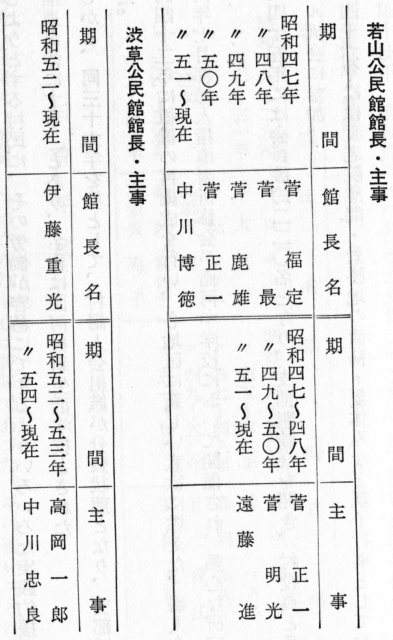 若山公民館館長・主事
期間　館長名　期間　主事
昭和四七年　菅福定　昭和四七〜四八年　菅正一
〃四八年　菅最　〃四九〜五〇年　菅明光
〃四九年　菅鹿雄　〃五一〜現在　遠藤進
〃五〇年　菅正一
〃五一〜現在　中川博徳
渋草公民館館長・主事
期間　館長名　期間　主事
昭和五二〜現在　伊藤重光　昭和五二〜五三年　高岡一郎
〃五四〜現在　中川忠良